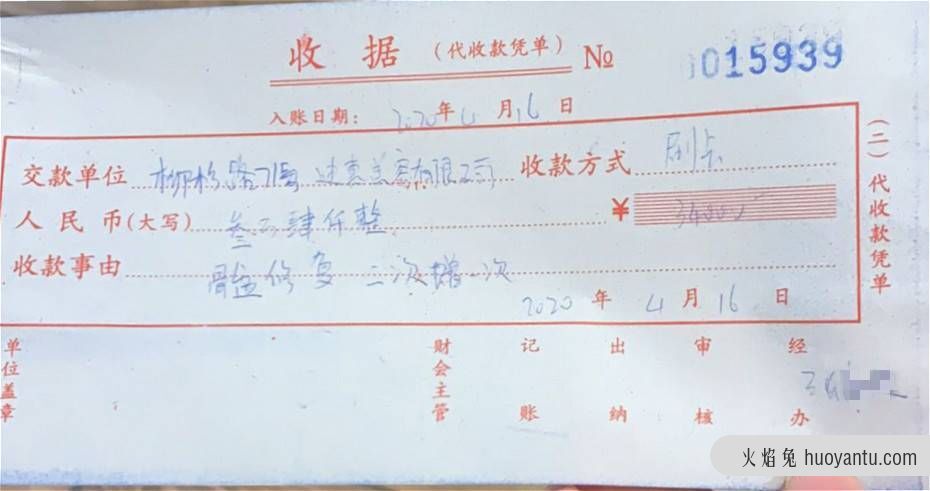 收据（代收款凭单） № 015939
入账日期：2020年4月16日
交款单位 柳杉路71号 美容有限公司 收款方式 刷卡
人民币(大写) 叁万肆仟整 ¥ 34000
收款事由 骨盆修复 三次赠一次
2020年4月16日
单位盖章 财会主管 记账 出纳 审核 经办
(二)代收款凭单
火焰兔 huoyantu.com